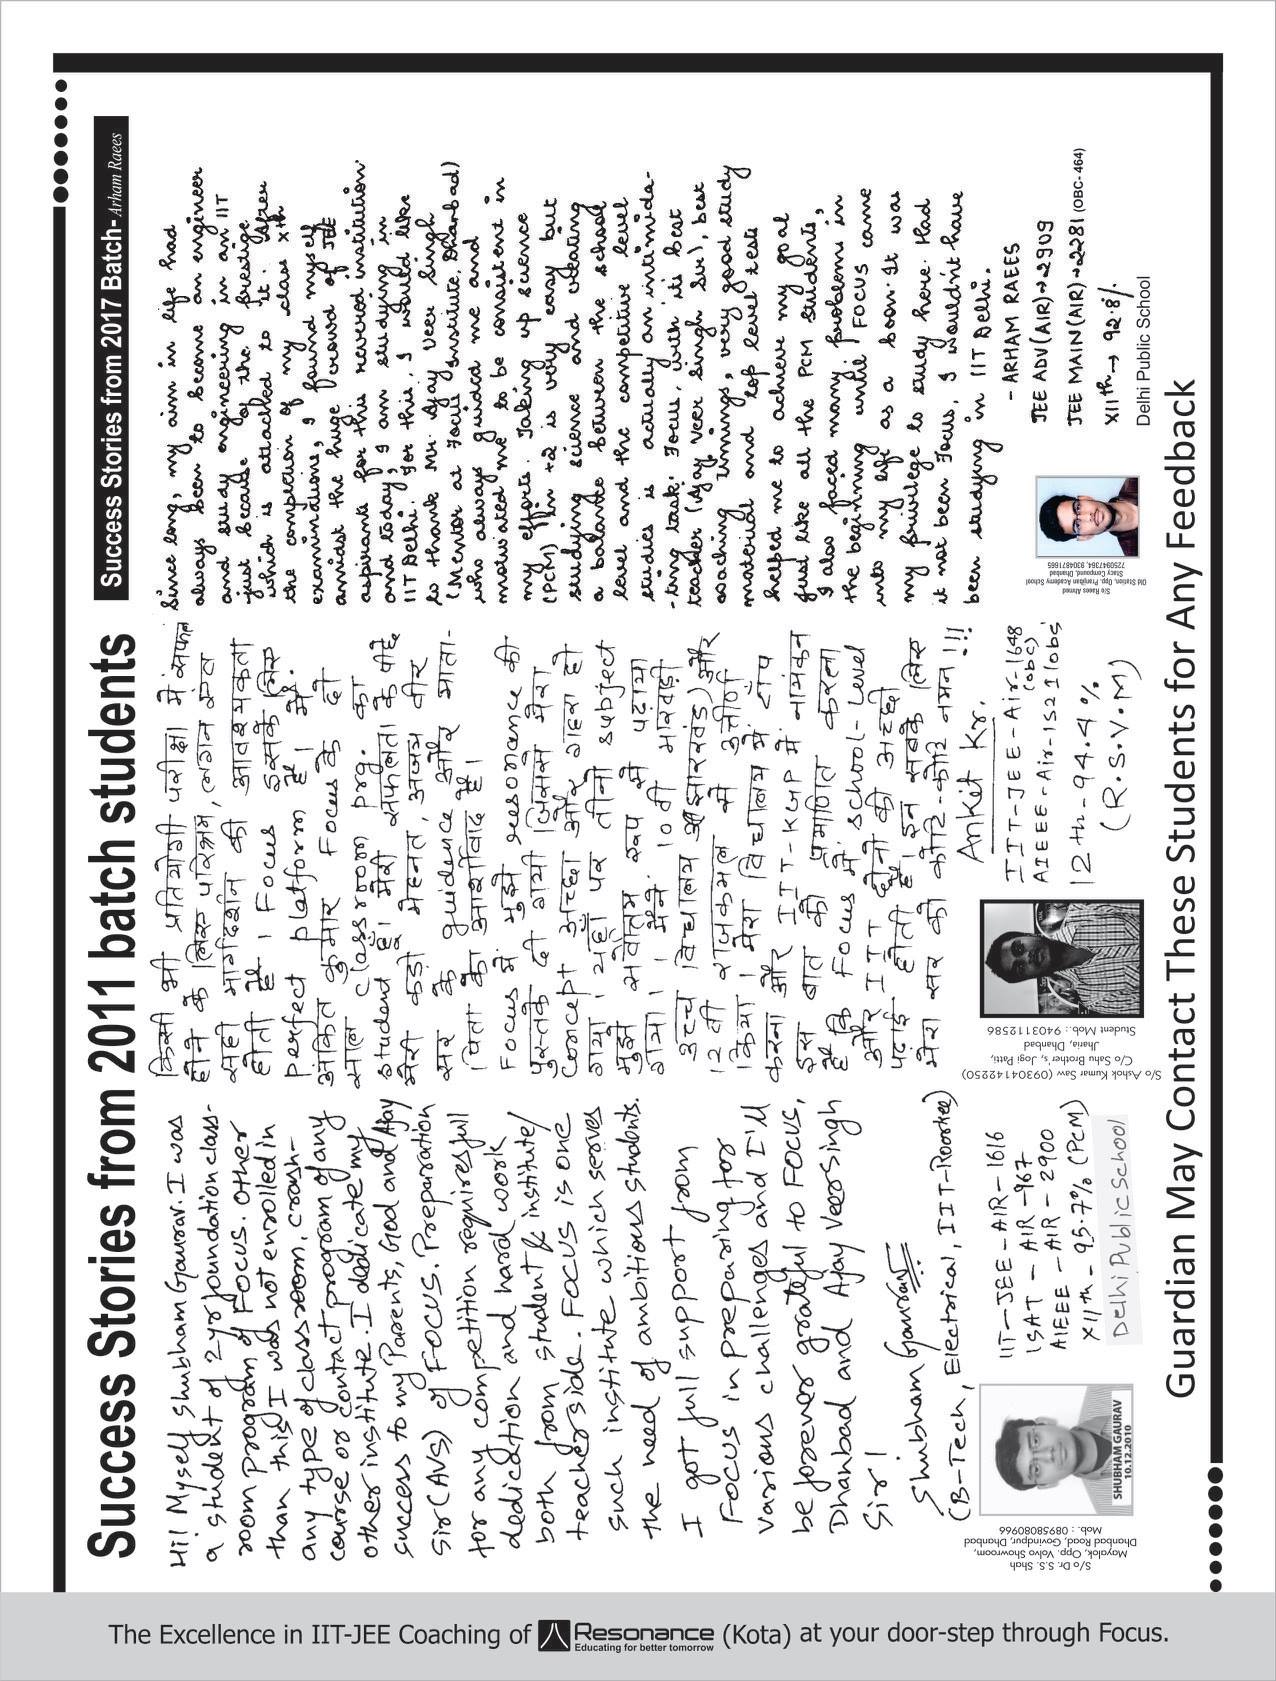 Success Stories from 2011 batch students
Hi! Myself Shubham Gaurav. I was
a student of 2yr foundation class-
room program of Focus. Other
than this I was not enrolled in
any type of classroom, crash-
course or contact program of any
other institute. I dedicate my
success to my Parents, God and Ajay
Sir (AVS) of FOCUS. Preparation
for any competition requires full
dedication and hard work
both from student & institute/
teacher side. FOCUS is one
such institute which serves
the need of ambitious students.
I got full support from
Focus in preparing for
various challenges and I'll
be forever grateful to FOCUS,
Dhanbad and Ajay Veersingh
Sir!
Shubham Gaurav
(B-Tech, Electrical, IIT-Roorkee)
IIT-JEE-AIR-1616
ISAT - AIR -967
AIEEE - AIR - 2900
XIIth - 95.7% (PCM)
Delhi Public School
SHUBHAM GAURAV
10.12.2010
S/o Dr. S.S. Shah
Mayalok, Opp. Volvo Showroom,
Dhanbad Road, Govindpur, Dhanbad
Mob. : 08958080966
किसी भी प्रतियोगी परीक्षा में सफल
होने के लिए परिश्रम, लगन
सही मार्गदर्शन की आवश्यकता
होती है। Focus इसके लिए
perfect platform है। मैं,
अंकित कुमार Focus के दो
साल classroom prg. का
student हूँ। मेरी सफलता के पीछे
मेरी कड़ी मेहनत, अजय वीर
सर के guidence और माता-
पिता का आशीर्वाद है।
Focus में मुझे resonance की
पुस्तकें दी गयी जिससे मेरा
concept अच्छा और गहरा हो
गया। यहाँ पर तीनो subject
मुझे नवीतम रूप में पढ़ाया
गया। मैंने 10वी मारवाड़ी
उच्च विद्यालय (झारखंड) और
12वी राजकमल से उत्तीर्ण
किया। मेरा विद्यालय में टॉप
करना और IIT-KGP में नामांकन
इस बात को प्रमाणित करता
है कि Focus में school-level
और IIT दोनो की अच्छी
पढ़ाई होती है। इन सबके लिए
मेरा सर को कोटि-कोटि नमन !!!
Ankit Kr.
IIT-JEE-Air-1648
(obc)
AIEEE-Air-1521(obc)
12th-94.4%
(R.S.V.M)
S/o Ashok Kumar Saw (09304142250)
C/o Sahu Brother's, Jogi Patti,
Jharia, Dhanbad
Student Mob.: 9403112586
Success Stories from 2017 Batch-Arham Raees
Since long, my aim in life had
always been to become an engineer
and study engineering in an IIT
just because of the prestige
which is attached to it. After
the completion of my class Xth
examinations, I found myself
amidst the huge crowd of JEE
aspirants for this revered institution
and today, I am studying in
IIT Delhi. For this, I would like
to thank Mr. Ajay Veer Singh
(Mentor at Focus Institute, Dhanbad)
who always guided me and
motivated me to be consistent in
my efforts. Taking up science
(PCM) in +2 is very easy but
studying science and creating
a balance between the school
level and the competitive level
studies is actually an intimida-
-ting task. Focus, with its best
teacher (Ajay Veer Singh Sir), best
coaching timings, very good study
material and top level tests
helped me to achieve my goal
Just like all the PCM students,
I also faced many problems in
the beginning until FOCUS came
into my life as a boon. It was
my privilege to study here. Had
it not been Focus, I wouldn't have
been studying in IIT Delhi.
- ARHAM RAEES
JEE ADV(AIR)→2909
JEE MAIN(AIR)→2281 (OBC-464)
XIIth → 92.8%
Delhi Public School
S/o Raees Ahmed
Old Station, Opp. Pranjivan Academy School
Stacy Compound, Dhanbad
7250947364, 9304871665
Guardian May Contact These Students for Any Feedback
The Excellence in IIT-JEE Coaching of Resonance (Kota) at your door-step through Focus.
Educating for better tomorrow